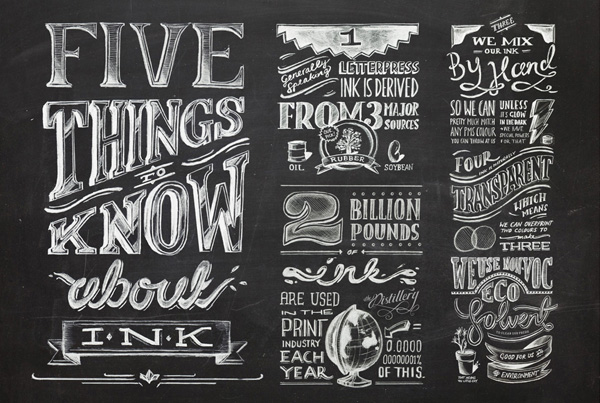 FIVE
THINGS
TO
KNOW
about
I·N·K
1
Generally
Speaking
LETTERPRESS
INK IS DERIVED
FROM 3 MAJOR
SOURCES
OIL
RUBBER
SOYBEAN
2 BILLION
POUNDS
OF
ink
ARE USED
IN THE
PRINT
INDUSTRY
EACH
YEAR
the Distillery
= 0.0000
000000001%
OF THIS.
THREE
WE MIX
OUR INK
By Hand
SO WE CAN
PRETTY MUCH MATCH
ANY PMS COLOUR
YOU CAN THROW AT US
UNLESS
ITS GLOW
IN THE DARK
WE HAVE
SPECIAL POWERS
FOR THAT
FOUR
TRANSPARENT
WHICH
MEANS
WE CAN OVERPRINT
TWO COLOURS TO
make
THREE
WE USE NON VOC
ECO
Solvent
GOOD FOR US
ENVIRONMENT